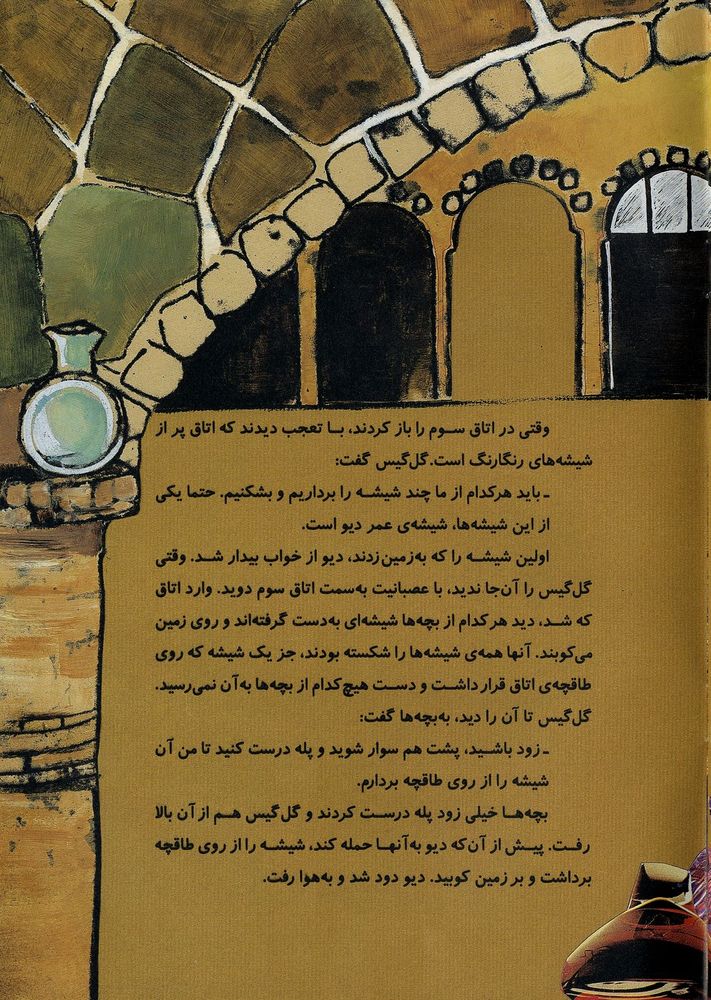 وقتی در اتاق سوم را باز کردند، با تعجب دیدند که اتاق پر از
شیشه‌های رنگارنگ است. گل‌گیس گفت:
ـ باید هرکدام از ما چند شیشه را برداریم و بشکنیم. حتما یکی
از این شیشه‌ها، شیشه‌ی عمر دیو است.
اولین شیشه را که به‌زمین زدند، دیو از خواب بیدار شد. وقتی
گل‌گیس را آن‌جا ندید، با عصبانیت به‌سمت اتاق سوم دوید. وارد اتاق
که شد، دید هرکدام از بچه‌ها شیشه‌ای به‌دست گرفته‌اند و روی زمین
می‌کوبند. آنها همه‌ی شیشه‌ها را شکسته بودند، جز یک شیشه که روی
طاقچه‌ی اتاق قرار داشت و دست هیچ‌کدام از بچه‌ها به‌آن نمی‌رسید.
گل‌گیس تا آن را دید، به‌بچه‌ها گفت:
ـ زود باشید، پشت هم سوار شوید و پله درست کنید تا من آن
شیشه را از روی طاقچه بردارم.
بچه‌ها خیلی زود پله درست کردند و گل‌گیس هم از آن بالا
رفت. پیش از آن‌که دیو به‌آنها حمله کند، شیشه را از روی طاقچه
برداشت و بر زمین کوبید. دیو دود شد و به‌هوا رفت.